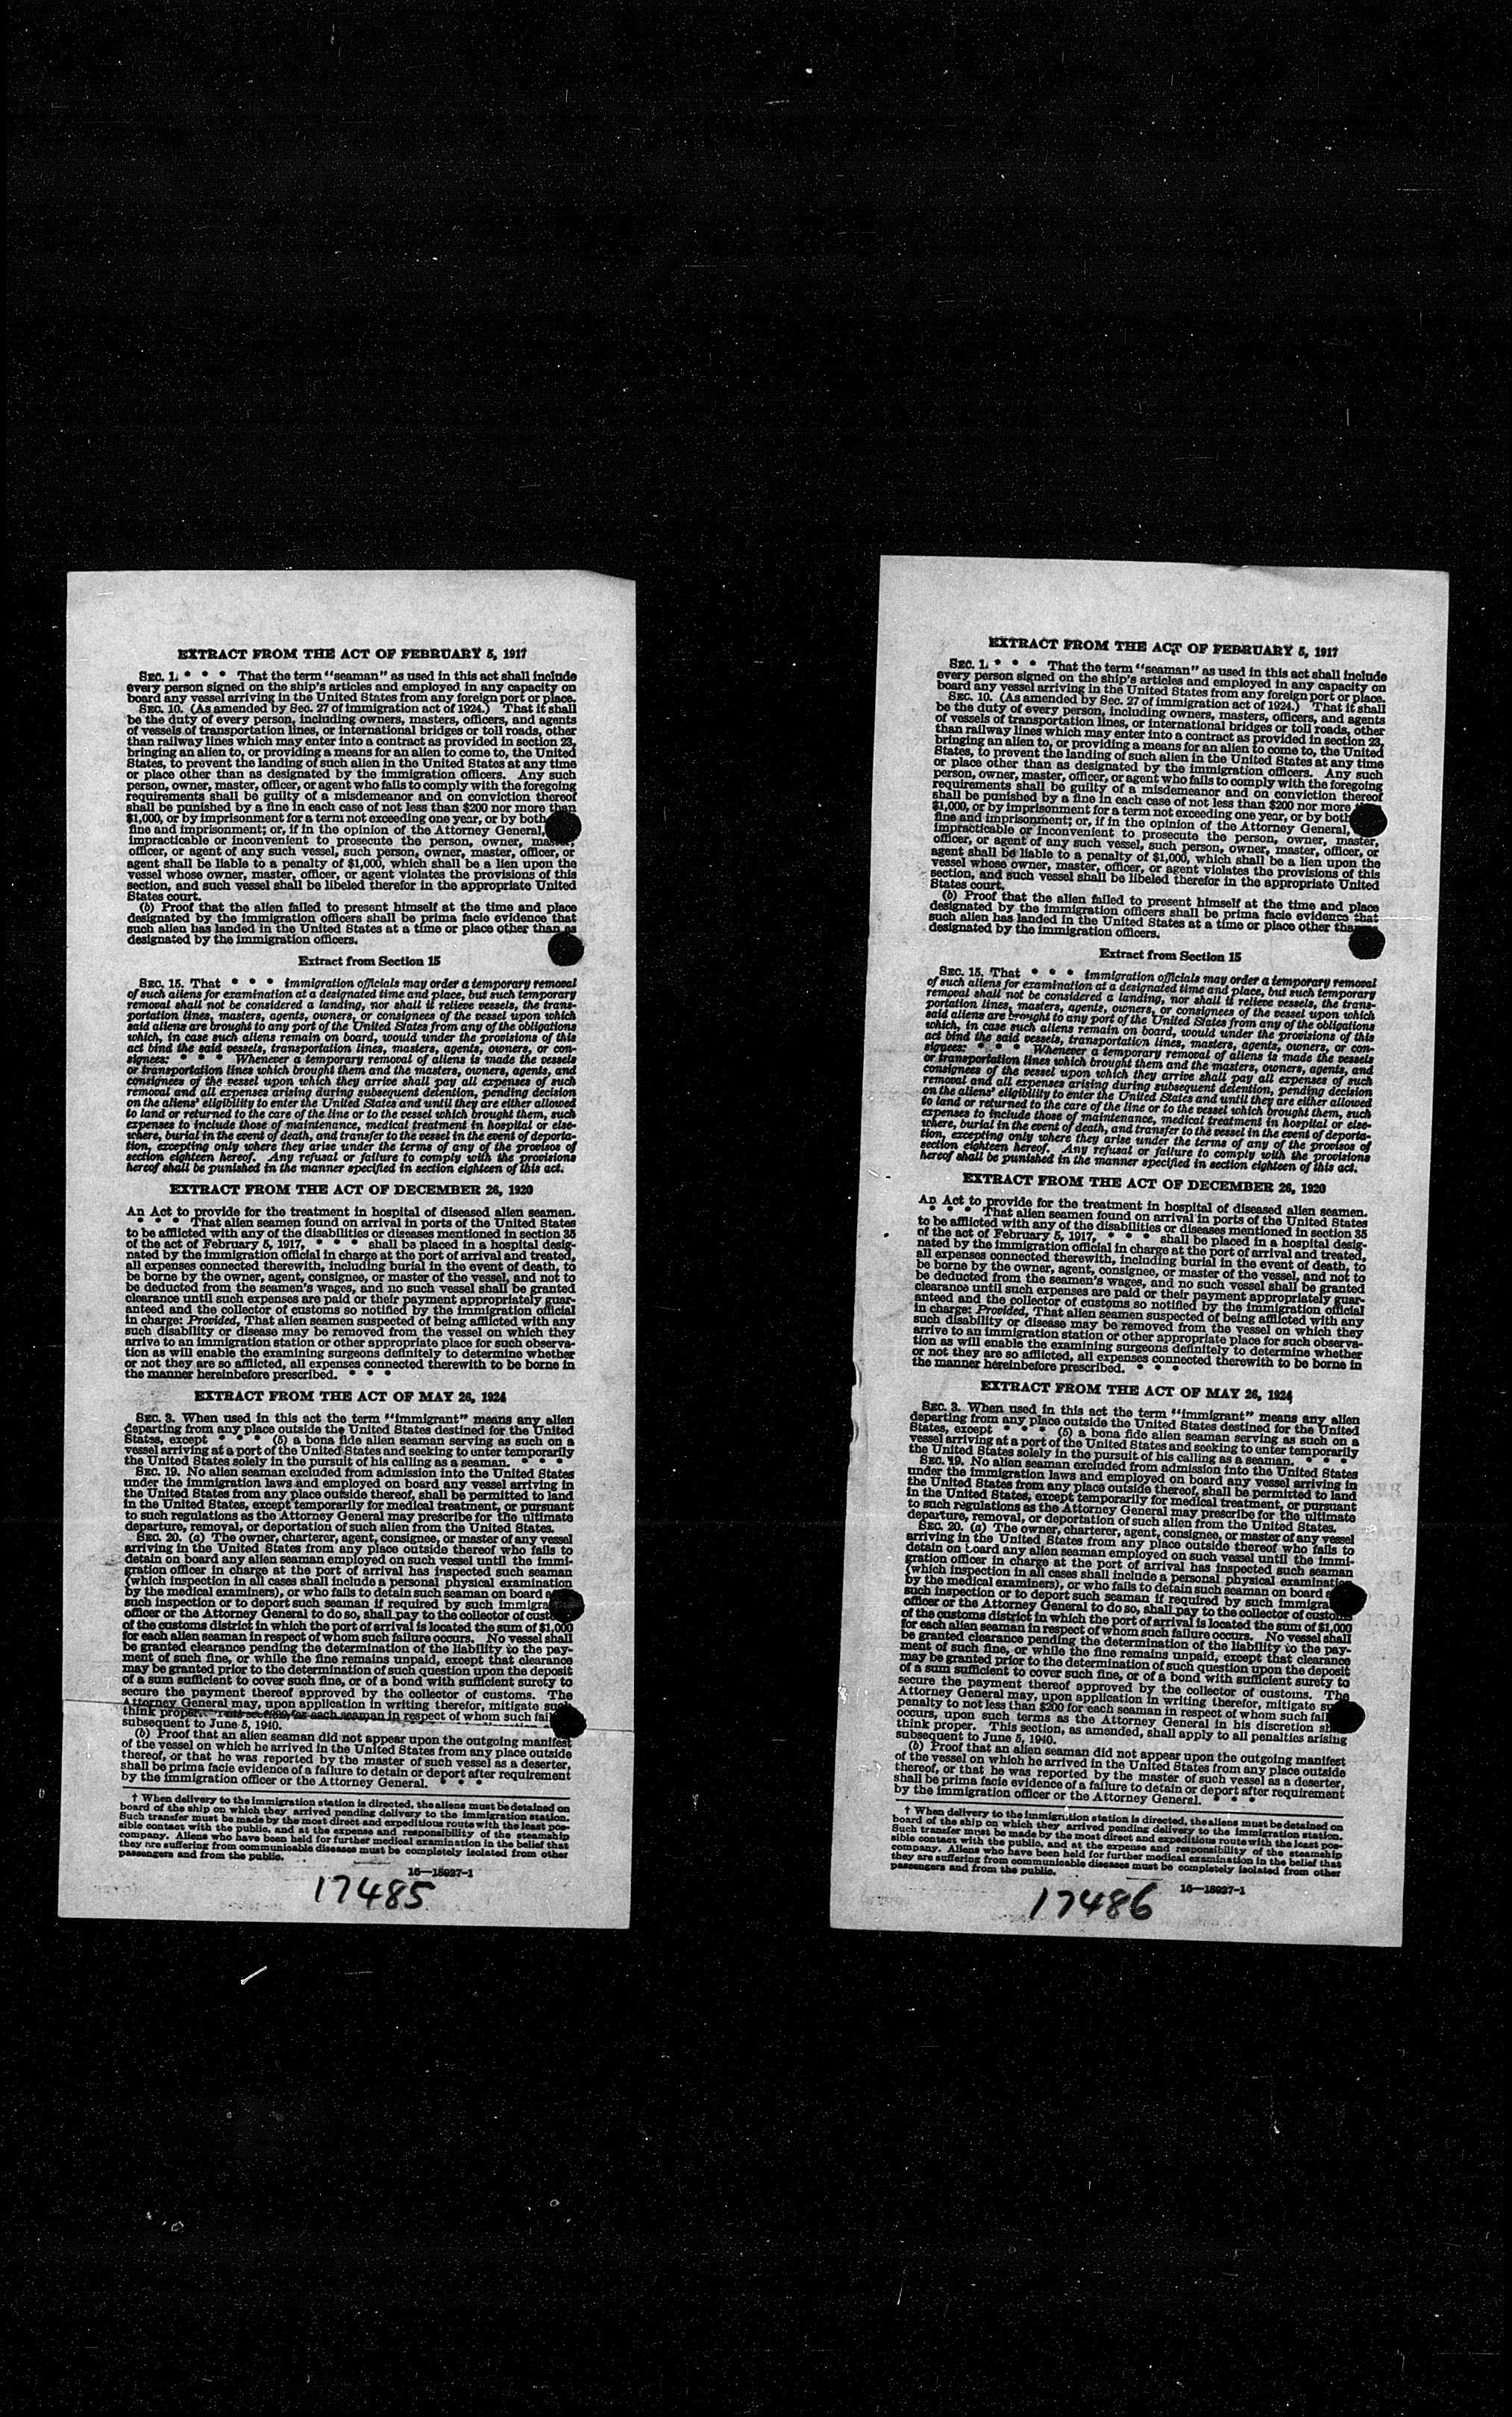 EXTRACT FROM THE ACT OF FEBRUARY 5, 1917
SEC. 1. * * * That the term "seaman" as used in this act shall include
every person signed on the ship's articles and employed in any capacity on
board any vessel arriving in the United States from any foreign port or place.
SEC. 10. (As amended by Sec. 27 of immigration act of 1924.) That it shall
be the duty of every person, including owners, masters, officers, and agents
of vessels of transportation lines, or international bridges or toll roads, other
than railway lines which may enter into a contract as provided in section 23,
bringing an alien to, or providing a means for an alien to come to, the United
States, to prevent the landing of such alien in the United States at any time
or place other than as designated by the immigration officers. Any such
person, owner, master, officer, or agent who fails to comply with the foregoing
requirements shall be guilty of a misdemeanor and on conviction thereof
shall be punished by a fine in each case of not less than $200 nor more than
$1,000, or by imprisonment for a term not exceeding one year, or by both
fine and imprisonment; or, if in the opinion of the Attorney General,
impracticable or inconvenient to prosecute the person, owner, master,
officer, or agent of any such vessel, such person, owner, master, officer, or
agent shall be liable to a penalty of $1,000, which shall be a lien upon the
vessel whose owner, master, officer, or agent violates the provisions of this
section, and such vessel shall be libeled therefor in the appropriate United
States court.
(b) Proof that the alien failed to present himself at the time and place
designated by the immigration officers shall be prima facie evidence that
such alien has landed in the United States at a time or place other than as
designated by the immigration officers.
Extract from Section 15
SEC. 15. That * * * immigration officials may order a temporary removal
of such aliens for examination at a designated time and place, but such temporary
removal shall not be considered a landing, nor shall it relieve vessels, the trans-
portation lines, masters, agents, owners, or consignees of the vessel upon which
said aliens are brought to any port of the United States from any of the obligations
which, in case such aliens remain on board, would under the provisions of this
act bind the said vessels, transportation lines, masters, agents, owners, or con-
signees: * * * Whenever a temporary removal of aliens is made the vessels
or transportation lines which brought them and the masters, owners, agents, and
consignees of the vessel upon which they arrive shall pay all expenses of such
removal and all expenses arising during subsequent detention, pending decision
on the aliens' eligibility to enter the United States and until they are either allowed
to land or returned to the care of the line or to the vessel which brought them, such
expenses to include those of maintenance, medical treatment in hospital or else-
where, burial in the event of death, and transfer to the vessel in the event of deporta-
tion, excepting only where they arise under the terms of any of the provisos of
section eighteen hereof. Any refusal or failure to comply with the provisions
hereof shall be punished in the manner specified in section eighteen of this act.
EXTRACT FROM THE ACT OF DECEMBER 26, 1920
An Act to provide for the treatment in hospital of diseased alien seamen.
* * * That alien seamen found on arrival in ports of the United States
to be afflicted with any of the disabilities or diseases mentioned in section 35
of the act of February 5, 1917, * * * shall be placed in a hospital desig-
nated by the immigration official in charge at the port of arrival and treated,
all expenses connected therewith, including burial in the event of death, to
be borne by the owner, agent, consignee, or master of the vessel, and not to
be deducted from the seamen's wages, and no such vessel shall be granted
clearance until such expenses are paid or their payment appropriately guar-
anteed and the collector of customs so notified by the immigration official
in charge: Provided, That alien seamen suspected of being afflicted with any
such disability or disease may be removed from the vessel on which they
arrive to an immigration station or other appropriate place for such observa-
tion as will enable the examining surgeons definitely to determine whether
or not they are so afflicted, all expenses connected therewith to be borne in
the manner hereinbefore prescribed. * * *
EXTRACT FROM THE ACT OF MAY 26, 1924
SEC. 3. When used in this act the term "immigrant" means any alien
departing from any place outside the United States destined for the United
States, except * * * (5) a bona fide alien seaman serving as such on a
vessel arriving at a port of the United States and seeking to enter temporarily
the United States solely in the pursuit of his calling as a seaman. * * *
SEC. 19. No alien seaman excluded from admission into the United States
under the immigration laws and employed on board any vessel arriving in
the United States from any place outside thereof, shall be permitted to land
in the United States, except temporarily for medical treatment, or pursuant
to such regulations as the Attorney General may prescribe for the ultimate
departure, removal, or deportation of such alien from the United States.
SEC. 20. (a) The owner, charterer, agent, consignee, or master of any vessel
arriving in the United States from any place outside thereof who fails to
detain on board any alien seaman employed on such vessel until the immi-
gration officer in charge at the port of arrival has inspected such seaman
(which inspection in all cases shall include a personal physical examination
by the medical examiners), or who fails to detain such seaman on board
such inspection or to deport such seaman if required by such
officer or the Attorney General to do so, shall pay to the collector of
of the customs district in which the port of arrival is located the sum of $1,000
for each alien seaman in respect of whom such failure occurs. No vessel shall
be granted clearance pending the determination of the liability to the pay-
ment of such fine, or while the fine remains unpaid, except that clearance
may be granted prior to the determination of such question upon the deposit
of a sum sufficient to cover such fine, or of a bond with sufficient surety to
secure the payment thereof approved by the collector of customs. The
Attorney General may, upon application in writing therefor, mitigate such
think proper. for each seaman in respect of whom such
subsequent to June 5, 1940.
(b) Proof that an alien seaman did not appear upon the outgoing manifest
of the vessel on which he arrived in the United States from any place outside
thereof, or that he was reported by the master of such vessel as a deserter,
shall be prima facie evidence of a failure to detain or deport after requirement
by the immigration officer or the Attorney General. * * *
† When delivery to the immigration station is directed, the aliens must be detained on
board of the ship on which they arrived pending delivery to the immigration station.
Such transfer must be made by the most direct and expeditious route with the least pos-
sible contact with the public, and at the expense and responsibility of the steamship
company. Aliens who have been held for further medical examination in the belief that
they are suffering from communicable diseases must be completely isolated from other
passengers and from the public.
16—18927-1
17485
EXTRACT FROM THE ACT OF FEBRUARY 5, 1917
SEC. 1. * * * That the term "seaman" as used in this act shall include
every person signed on the ship's articles and employed in any capacity on
board any vessel arriving in the United States from any foreign port or place.
SEC. 10. (As amended by Sec. 27 of immigration act of 1924.) That it shall
be the duty of every person, including owners, masters, officers, and agents
of vessels of transportation lines, or international bridges or toll roads, other
than railway lines which may enter into a contract as provided in section 23,
bringing an alien to, or providing a means for an alien to come to, the United
States, to prevent the landing of such alien in the United States at any time
or place other than as designated by the immigration officers. Any such
person, owner, master, officer, or agent who fails to comply with the foregoing
requirements shall be guilty of a misdemeanor and on conviction thereof
shall be punished by a fine in each case of not less than $200 nor more
$1,000, or by imprisonment for a term not exceeding one year, or by both
fine and imprisonment; or, if in the opinion of the Attorney General,
impracticable or inconvenient to prosecute the person, owner, master,
officer, or agent of any such vessel, such person, owner, master, officer, or
agent shall be liable to a penalty of $1,000, which shall be a lien upon the
vessel whose owner, master, officer, or agent violates the provisions of this
section, and such vessel shall be libeled therefor in the appropriate United
States court.
(b) Proof that the alien failed to present himself at the time and place
designated by the immigration officers shall be prima facie evidence that
such alien has landed in the United States at a time or place other
designated by the immigration officers.
Extract from Section 15
SEC. 15. That * * * immigration officials may order a temporary removal
of such aliens for examination at a designated time and place, but such temporary
removal shall not be considered a landing, nor shall it relieve vessels, the trans-
portation lines, masters, agents, owners, or consignees of the vessel upon which
said aliens are brought to any port of the United States from any of the obligations
which, in case such aliens remain on board, would under the provisions of this
act bind the said vessels, transportation lines, masters, agents, owners, or con-
signees: * * * Whenever a temporary removal of aliens is made the vessels
or transportation lines which brought them and the masters, owners, agents, and
consignees of the vessel upon which they arrive shall pay all expenses of such
removal and all expenses arising during subsequent detention, pending decision
on the aliens' eligibility to enter the United States and until they are either allowed
to land or returned to the care of the line or to the vessel which brought them, such
expenses to include those of maintenance, medical treatment in hospital or else-
where, burial in the event of death, and transfer to the vessel in the event of deporta-
tion, excepting only where they arise under the terms of any of the provisos of
section eighteen hereof. Any refusal or failure to comply with the provisions
hereof shall be punished in the manner specified in section eighteen of this act.
EXTRACT FROM THE ACT OF DECEMBER 26, 1920
An Act to provide for the treatment in hospital of diseased alien seamen.
* * * That alien seamen found on arrival in ports of the United States
to be afflicted with any of the disabilities or diseases mentioned in section 35
of the act of February 5, 1917, * * * shall be placed in a hospital desig-
nated by the immigration official in charge at the port of arrival and treated,
all expenses connected therewith, including burial in the event of death, to
be borne by the owner, agent, consignee, or master of the vessel, and not to
be deducted from the seamen's wages, and no such vessel shall be granted
clearance until such expenses are paid or their payment appropriately guar-
anteed and the collector of customs so notified by the immigration official
in charge: Provided, That alien seamen suspected of being afflicted with any
such disability or disease may be removed from the vessel on which they
arrive to an immigration station or other appropriate place for such observa-
tion as will enable the examining surgeons definitely to determine whether
or not they are so afflicted, all expenses connected therewith to be borne in
the manner hereinbefore prescribed. * * *
EXTRACT FROM THE ACT OF MAY 26, 1924
SEC. 3. When used in this act the term "immigrant" means any alien
departing from any place outside the United States destined for the United
States, except * * * (5) a bona fide alien seaman serving as such on a
vessel arriving at a port of the United States and seeking to enter temporarily
the United States solely in the pursuit of his calling as a seaman. * * *
SEC. 19. No alien seaman excluded from admission into the United States
under the immigration laws and employed on board any vessel arriving in
the United States from any place outside thereof, shall be permitted to land
in the United States, except temporarily for medical treatment, or pursuant
to such regulations as the Attorney General may prescribe for the ultimate
departure, removal, or deportation of such alien from the United States.
SEC. 20. (a) The owner, charterer, agent, consignee, or master of any vessel
arriving in the United States from any place outside thereof who fails to
detain on board any alien seaman employed on such vessel until the immi-
gration officer in charge at the port of arrival has inspected such seaman
(which inspection in all cases shall include a personal physical examination
by the medical examiners), or who fails to detain such seaman on board
such inspection or to deport such seaman if required by such
officer or the Attorney General to do so, shall pay to the collector of customs
of the customs district in which the port of arrival is located the sum of $1,000
for each alien seaman in respect of whom such failure occurs. No vessel shall
be granted clearance pending the determination of the liability to the pay-
ment of such fine, or while the fine remains unpaid, except that clearance
may be granted prior to the determination of such question upon the deposit
of a sum sufficient to cover such fine, or of a bond with sufficient surety to
secure the payment thereof approved by the collector of customs. The
Attorney General may, upon application in writing therefor, mitigate
penalty to not less than $200 for each seaman in respect of whom such
occurs, upon such terms as the Attorney General in his discretion
think proper. This section, as amended, shall apply to all penalties arising
subsequent to June 5, 1940.
(b) Proof that an alien seaman did not appear upon the outgoing manifest
of the vessel on which he arrived in the United States from any place outside
thereof, or that he was reported by the master of such vessel as a deserter,
shall be prima facie evidence of a failure to detain or deport after requirement
by the immigration officer or the Attorney General. * * *
† When delivery to the immigration station is directed, the aliens must be detained on
board of the ship on which they arrived pending delivery to the immigration station.
Such transfer must be made by the most direct and expeditious route with the least pos-
sible contact with the public, and at the expense and responsibility of the steamship
company. Aliens who have been held for further medical examination in the belief that
they are suffering from communicable diseases must be completely isolated from other
passengers and from the public.
16—18927-1
17486